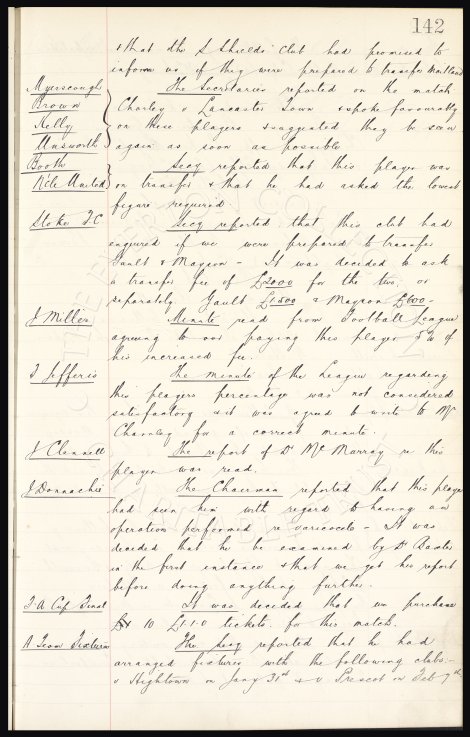 142
& that the S Shields Club had promised to
inform us if they were prepared to transfer Maitland
Myerscough The Secretaries reported on the match
Brown Chorley v Lancaster Town & spoke favourably
Kelly on these players & suggested they be seen
Unsworth again as soon as possible
Booth Secy reported that this player was
N'cle United on transfer & that he had asked the lowest
figure required.
Stoke F.C Secy reported that this club had
enquired if we were prepared to transfer
Gault & Mayson - It was decided to ask
a transfer fee of £2000 for the two, or
separately Gault £1500 & Mayson £600-
J Miller Minute read from Football League
agreeing to our paying this player of
his increased fee.
T. Jefferis The minute of the League regarding
this players percentage was not considered
satisfactory & it was agreed to write to Mr
Charnley for a correct minute.
J Clennell The report of Dr McMurray re this
player was read.
J Donnachie The Chairman reported that this player
had seen him with regard to having an
operation performed re varicocele - It was
decided that he be examined by Dr Baxter
in the first instance & that we get his report
before doing anything further.
F-A Cup Final It was decided that we purchase
10 £1.1.0 tickets for this match.
A Team Fixtures The Secy reported that he had
arranged fixtures with the following clubs:-
v Hightown on Jany 31st & v Prescot on Feb 7th